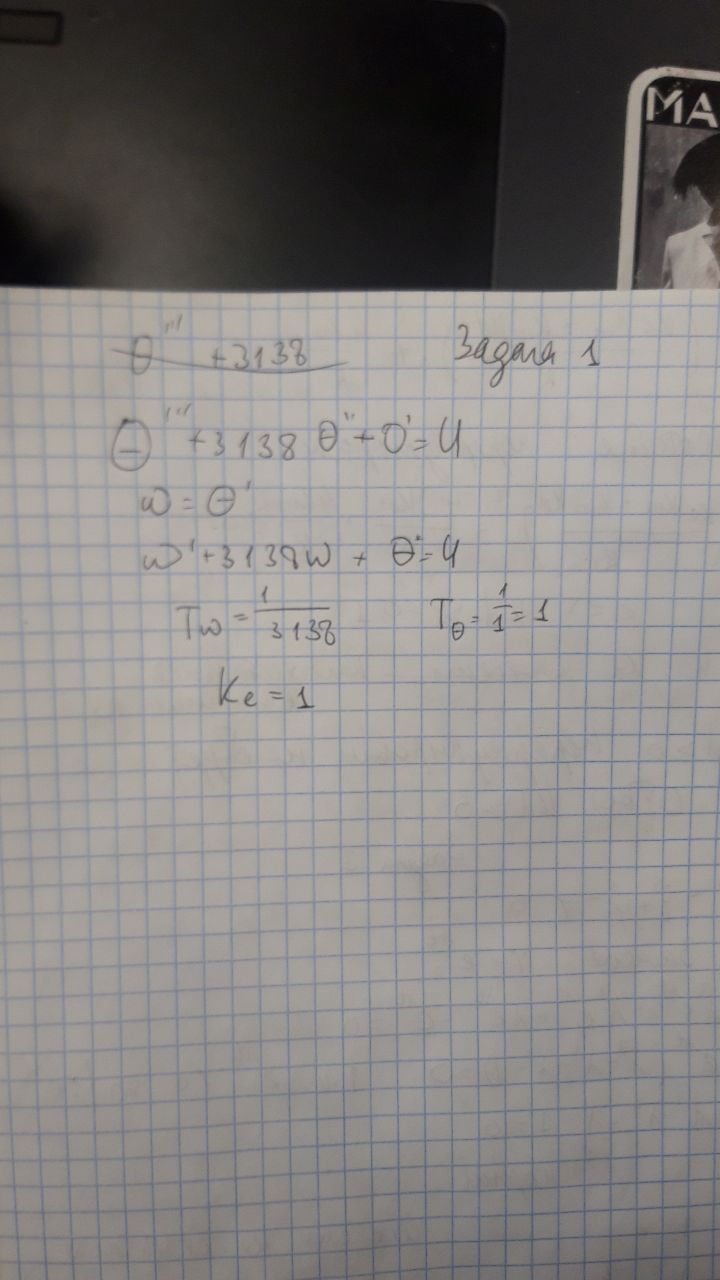 MA
θ''' +3138
Задача 1
θ''' +3138 θ'' + θ' = U
ω = θ'
ω' +3138ω + θ' = U
Tω = 1/3138 Tθ = 1/1 = 1
Ke = 1